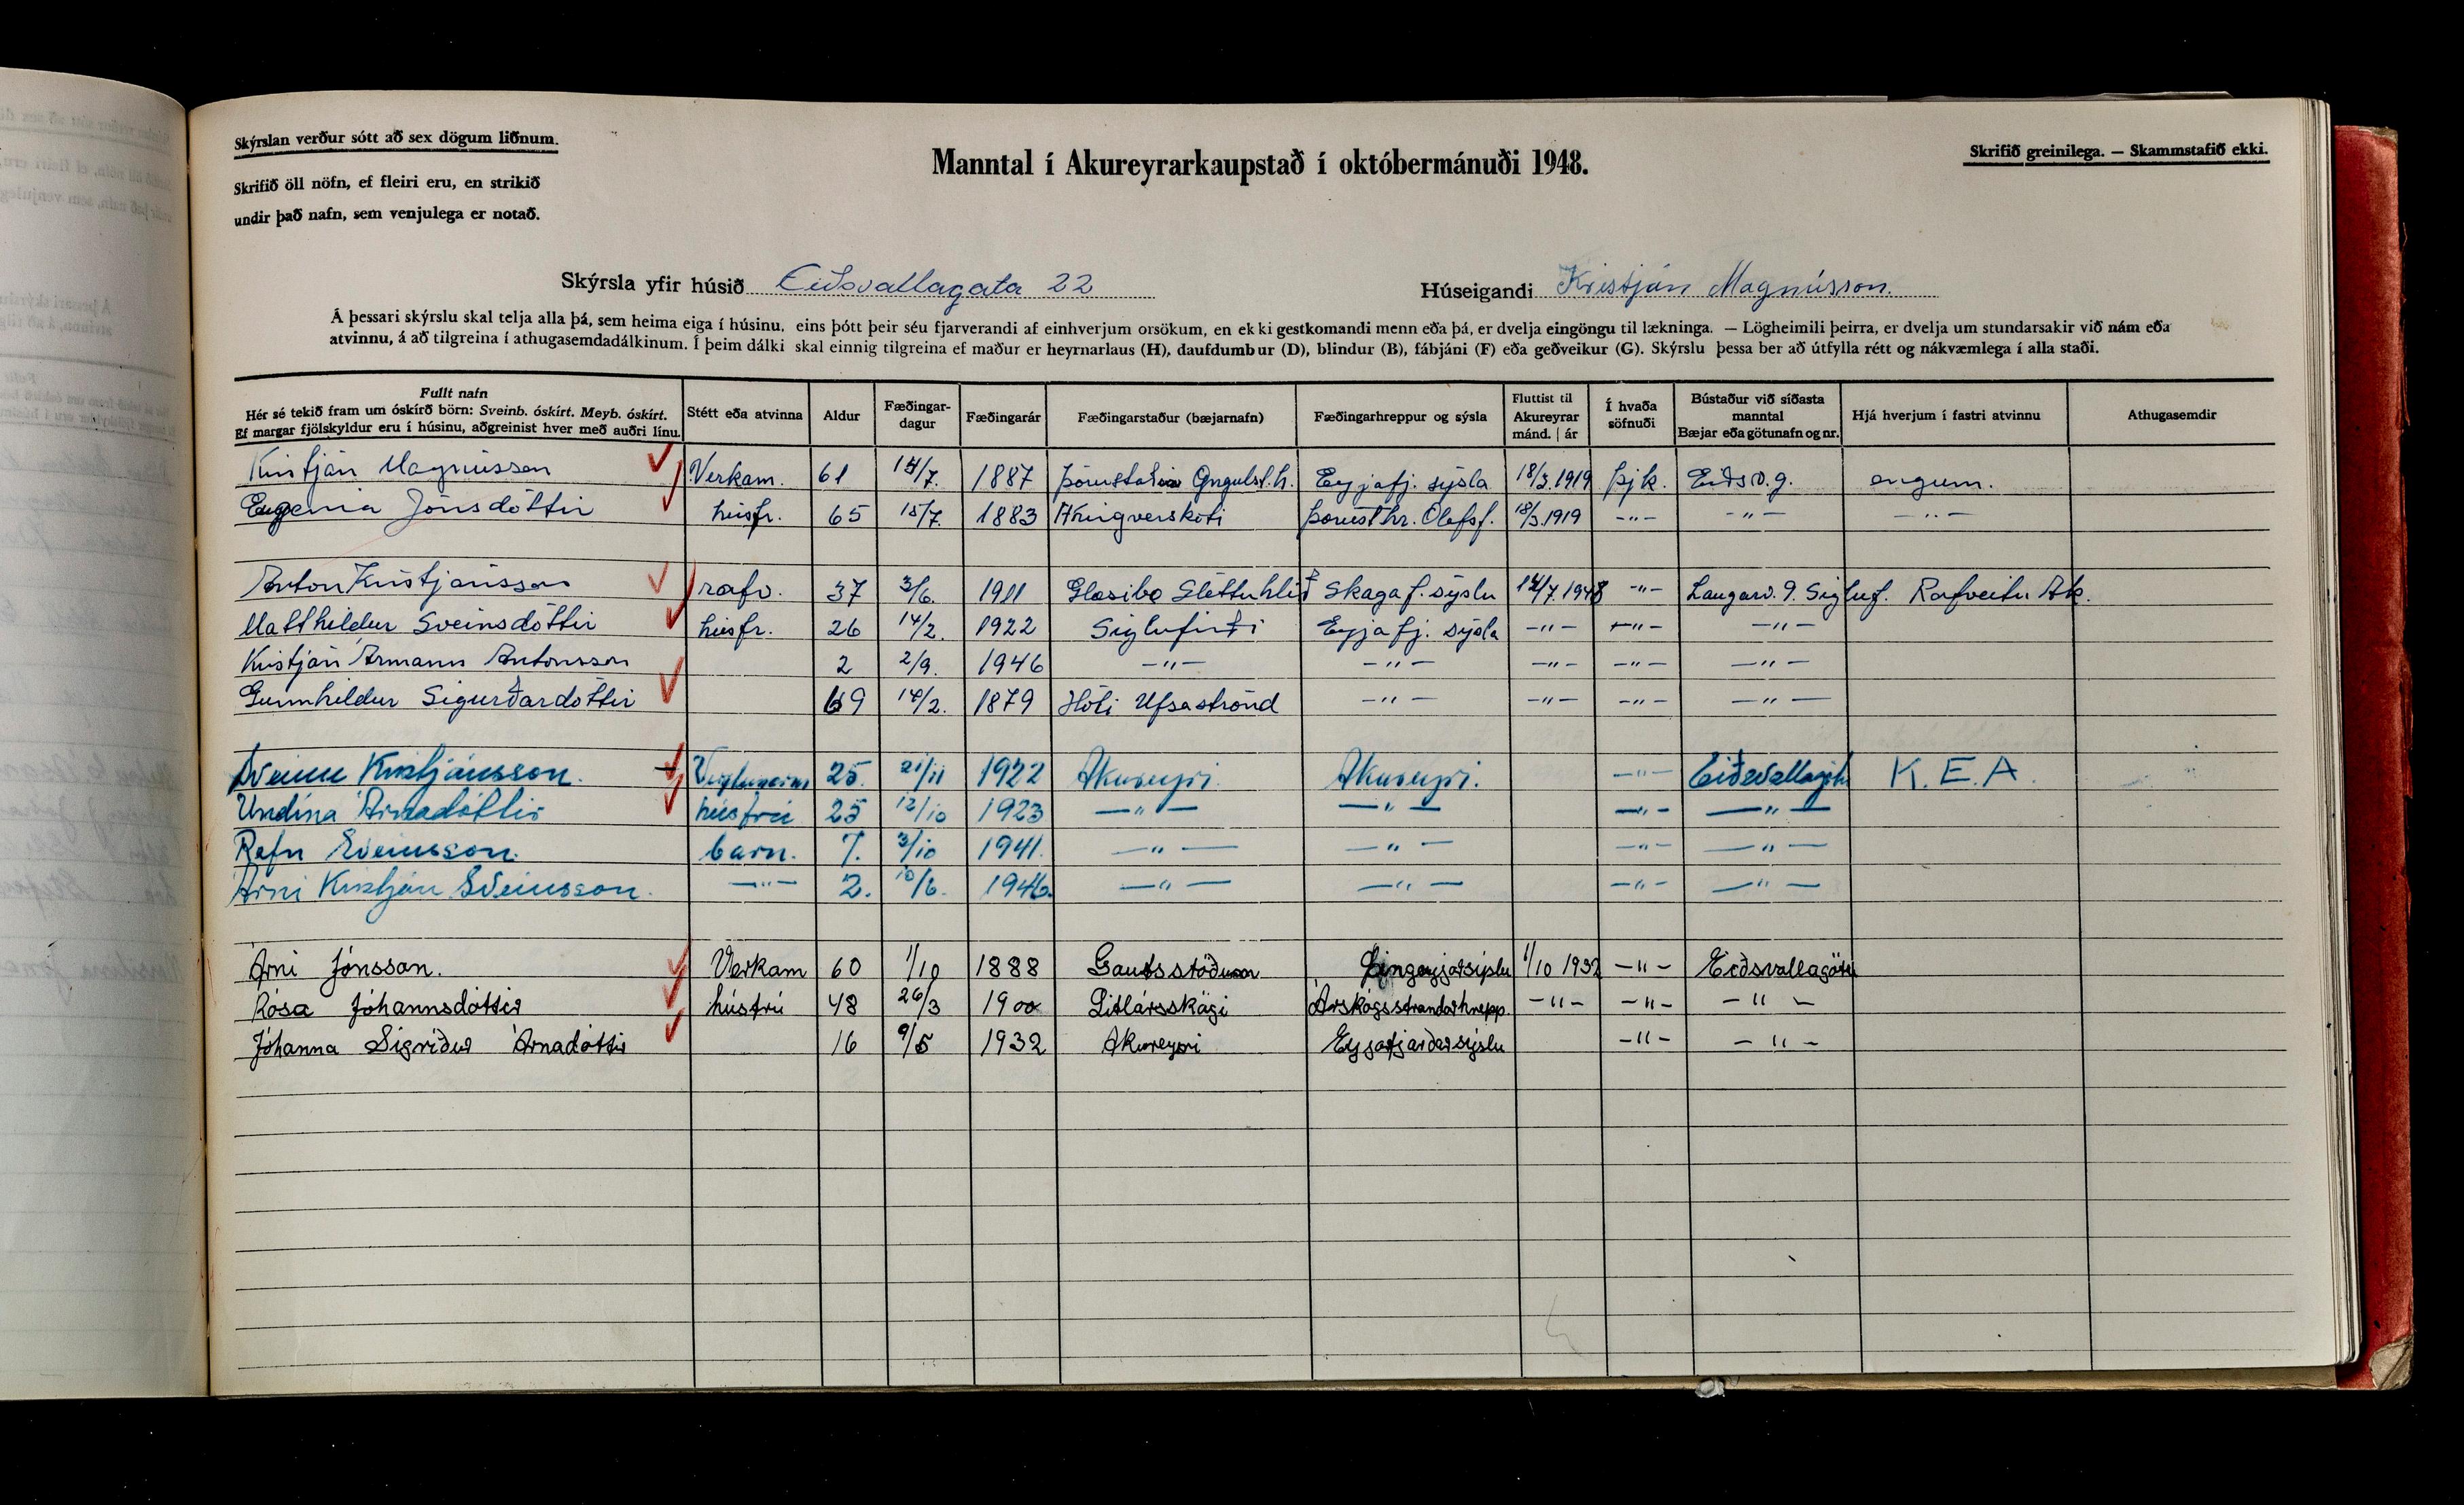 Skýrslan verður sótt að sex dögum liðnum.
Skrifið öll nöfn, ef fleiri eru, en strikið
undir það nafn, sem venjulega er notað.
Manntal í Akureyrarkaupstað í októbermánuði 1948.
Skrifið greinilega. — Skammstafið ekki.
Skýrsla yfir húsið Eiðsvallagata 22
Húseigandi Kristján Magnússon.
Á þessari skýrslu skal telja alla þá, sem heima eiga í húsinu, eins þótt þeir séu fjarverandi af einhverjum orsökum, en ekki gestkomandi menn eða þá, er dvelja eingöngu til lækninga. — Lögheimili þeirra, er dvelja um stundarsakir við nám eða
atvinnu, á að tilgreina í athugasemdadálkinum. Í þeim dálki skal einnig tilgreina ef maður er heyrnarlaus (H), daufdumbur (D), blindur (B), fábjáni (F) eða geðveikur (G). Skýrslu þessa ber að útfylla rétt og nákvæmlega í alla staði.
Fullt nafn
Hér sé tekið fram um óskírð börn: Sveinb. óskírt. Meyb. óskírt.
Ef margar fjölskyldur eru í húsinu, aðgreinist hver með auðri línu.
Stétt eða atvinna
Aldur
Fæðingar-
dagur
Fæðingarár
Fæðingarstaður (bæjarnafn)
Fæðingarhreppur og sýsla
Fluttist til
Akureyrar
mánd. | ár
Í hvaða
söfnuði
Bústaður við síðasta
manntal
Bæjar eða götunafn og nr.
Hjá hverjum í fastri atvinnu
Athugasemdir
Kristján Magnússon Verkam. 61 14/7. 1887 Þórustaðir Öngulst.h. Eyjafj. sýsla 18/3.1919 þjk. Eiðsv.g. engum.
Eugenia Jónsdóttir húsfr. 65 15/7. 1883 Þóroddst.hr. Ólafsf. 18/3.1919 -"- -"- -"-
Anton Kristjánsson rafv. 37 3/6. 1911 Glæsibæ Sléttuhlíð Skagafj. sýslu 14/7.1948 -"- Laugarv. 9. Sigluf. Rafveitu Ak.
Matthildur Sveinsdóttir húsfr. 26 14/2. 1922 Siglufirði Eyjafj. sýsla -"- -"- -"-
Kristján Ármann Antonsson 2 2/9. 1946 -"- -"- -"- -"- -"-
Gunnhildur Sigurðardóttir 69 14/2. 1879 Hóli Ufsaströnd -"- -"- -"- -"-
Sveinn Kristjánsson. 25. 21/11 1922 Akureyri. Akureyri. -"- K.E.A.
Undína Árnadóttir húsfrú 25 12/10 1923 -"- -"- -"- -"-
Rafn Sveinsson. barn. 7. 3/10 1941. -"- -"- -"- -"-
Árni Kristján Sveinsson. -"- 2. 10/6. 1946. -"- -"- -"- -"-
Árni Jónsson. Verkam 60 1/10 1888 Gautsstöðum Þingeyjarsýslu 1/10 1932 -"- Eiðsvallagötu
Rósa Jóhannsdóttir húsfrú 48 26/3 1900 Litlársskógi Árskógsstrandarhrepp. -"- -"- -"-
Jóhanna Sigríður Árnadóttir 16 9/5 1932 Akureyri Eyjafjarðarsýslu -"- -"-